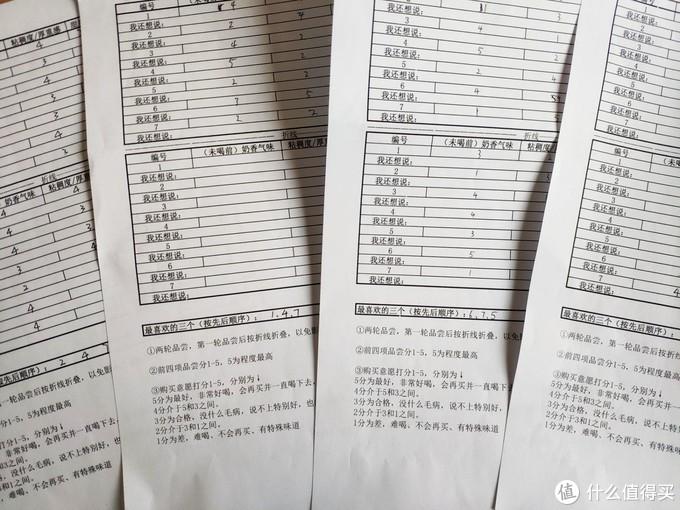 粘稠度/厚重感
4
3
3
4
3
3
2
折线
奶香气味 粘稠度/厚重
4
4
3
3
4
4
按先后顺序): 2 4
一轮品尝后按折线折叠,以免
打分1-5, 5为程度最高
打分1-5, 分别为↓
非常好喝, 会再买并一直喝下去
5和3之间。
没什么毛病, 说不上特别好, 也
和1之间。
难喝, 不会再买、有特殊味道
编号
1
我还想说:
2
我还想说:
3
我还想说:
4
我还想说:
5
我还想说:
6
我还想说:
7
我还想说:
折线
编号 (未喝前)奶香气味 粘稠度/厚
1
我还想说:
2
我还想说:
3
我还想说:
4
我还想说:
5
我还想说:
6
我还想说:
7
我还想说:
最喜欢的三个(按先后顺序): 1,4,7
①两轮品尝, 第一轮品尝后按折线折叠, 以免
②前四项品尝分1-5, 5为程度最高
③购买意愿打分1-5, 分别为↓
5分为最好, 非常好喝, 会再买并一直喝下去,
4分介于5和3之间。
3分为合格, 没什么毛病, 说不上特别好, 也
2分介于3和1之间。
1分为差, 难喝, 不会再买、有特殊味道
编号
我还想说:
2
我还想说:
3
我还想说:
4
我还想说:
5
我还想说:
6
我还想说:
7
我还想说:
折线
编号 (未喝前)奶香气味 粘稠度
1 3 2
我还想说:
2 1
我还想说:
3 4
我还想说:
4 4
我还想说:
5 3
我还想说:
6 5
我还想说:
7 1
我还想说:
最喜欢的三个(按先后顺序): 6,7,5
①两轮品尝, 第一轮品尝后按折线折叠,
②前四项品尝分1-5, 5为程度最高
③购买意愿打分1-5, 分别为↓
5分为最好, 非常好喝, 会再买并一直
4分介于5和3之间。
3分为合格, 没什么毛病, 说不上特别
2分介于3和1之间。
1分为差, 难喝, 不会再买、有特殊味道
我还想说:
6
我还想说:
7
我还想说:
编号 (未
1
我还想说:
2
我还想说:
3
我还想说:
4
我还想说:
5
我还想说:
6
我还想说:
7
我还想说:
最喜欢的三个(按
①两轮品尝, 第一
②前四项品尝分1-
③购买意愿打分1-
5分为最好, 非常
4分介于5和3之间
3分为合格, 没什
2分介于3和1之间
1分为差, 难喝,
值 什么值得买